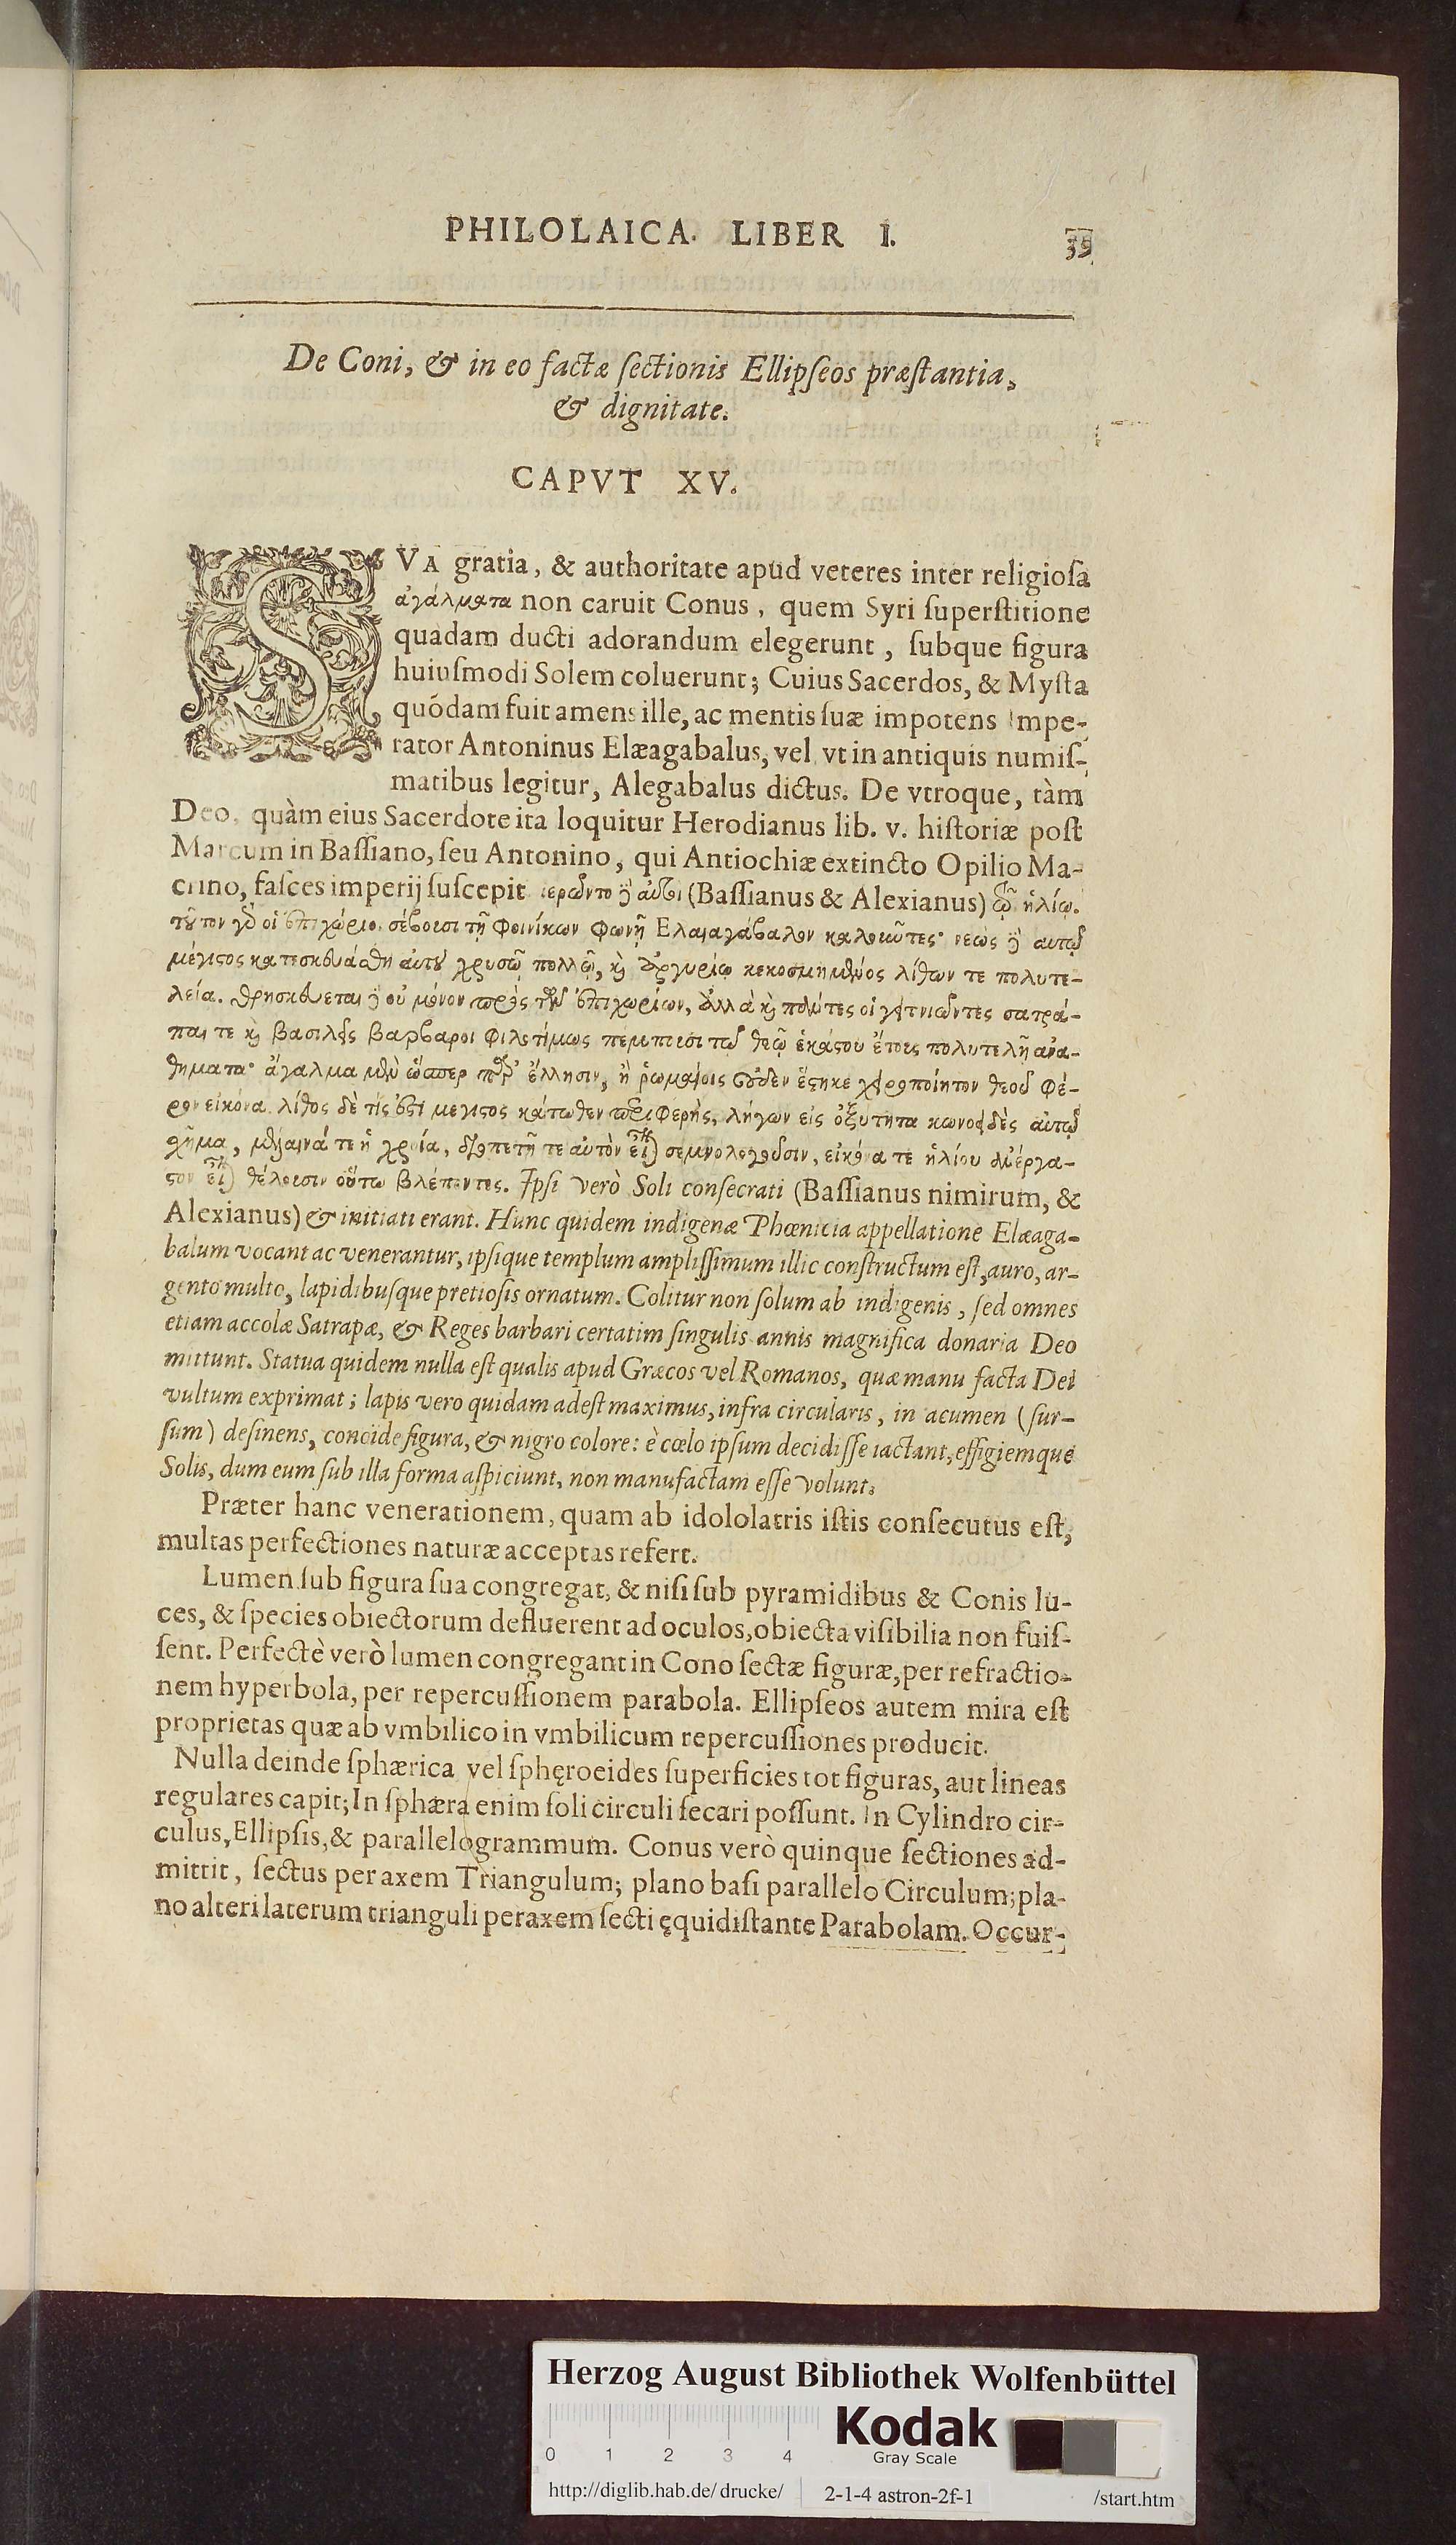 PHILOLAICA. LIBER I. 39
De Coni, & in eo factæ ſectionis Ellipſeos præſtantia,
& dignitate.
CAPVT XV.
SVA gratia, & authoritate apud veteres inter religioſa
ἀγάλματα non caruit Conus, quem Syri ſuperſtitione
quadam ducti adorandum elegerunt, ſubque figura
huiuſmodi Solem coluerunt; Cuius Sacerdos, & Myſta
quódam fuit amens ille, ac mentis ſuæ impotens Impe-
rator Antoninus Elæagabalus, vel vt in antiquis numiſ-
matibus legitur, Alegabalus dictus. De vtroque, tàm
Deo, quàm eius Sacerdote ita loquitur Herodianus lib. v. hiſtoriæ poſt
Marcum in Baſſiano, ſeu Antonino, qui Antiochiæ extincto Opilio Ma-
crino, faſces imperij ſuſcepit ἱερῶντο δὲ αὐτοὶ (Baſſianus & Alexianus) τῷ ἡλίῳ.
τοῦτον γὰρ οἱ ἐπιχώριοι σέβουσι τῇ Φοινίκων φωνῇ Ελαιαγάβαλον καλοῦντες· νεὼς δὲ αυτῷ
μέγιςος κατεσκευάσθη αὐτοῦ χρυσῷ πολλῷ, καὶ ἀργυρίῳ κεκοσμημένος λίθων τε πολυτε-
λεία. θρησκεύεται δὲ οὐ μόνον πρὸς τῶν ἐπιχωρίων, ἀλλὰ καὶ πάντες οἱ γειτνιῶντες σατρά-
παι τε καὶ βασιλεῖς βαρβαροι φιλοτίμως πέμπουσι τῷ θεῷ ἑκάςου ἔτους πολυτελῆ ανα-
θηματα· ἄγαλμα μὲν ὥσπερ παρ' ἕλλησιν, ἢ ῥωμαίοις οὐδεν ἕςηκε χειροποίητον θεοῦ φέ-
ρον εἰκόνα. λίθος δὲ τίς ἐςὶ μεγιςος κάτωθεν περιφερὴς, λήγων εἰς ὀξυτητα κωνοειδὲς αὐτῷ
χῆμα, μέλαινά τε ἡ χροία, διοπετῆ τε αὐτὸν εἶναι σεμνολογοῦσιν, εἰκόνα τε ἡλίου ἀνέργα-
ςον εἶναι θέλουσιν οὕτω βλέποντες. Ipſi verò Soli conſecrati (Baſſianus nimirum, &
Alexianus) & initiati erant. Hunc quidem indigenæ Phœnicia appellatione Elæaga-
balum vocant ac venerantur, ipſique templum ampliſſimum illic conſtructum eſt, auro, ar-
gento multo, lapidibuſque pretioſis ornatum. Colitur non ſolum ab indigenis, ſed omnes
etiam accolæ Satrapæ, & Reges barbari certatim ſingulis annis magnifica donaria Deo
mittunt. Statua quidem nulla eſt qualis apud Græcos vel Romanos, quæ manu facta Dei
vultum exprimat; lapis vero quidam adeſt maximus, infra circularis, in acumen (ſur-
ſum) deſinens, conoide figura, & nigro colore: è cœlo ipſum decidiſſe iactant, effigiemque
Solis, dum eum ſub illa forma aſpiciunt, non manufactam eſſe volunt.
Præter hanc venerationem, quam ab idololatris iſtis conſecutus eſt,
multas perfectiones naturæ acceptas refert.
Lumen ſub figura ſua congregat, & niſi ſub pyramidibus & Conis lu-
ces, & ſpecies obiectorum defluerent ad oculos, obiecta viſibilia non fuiſ-
ſent. Perfectè verò lumen congregant in Cono ſectæ figuræ, per refractio-
nem hyperbola, per repercuſſionem parabola. Ellipſeos autem mira eſt
proprietas quæ ab vmbilico in vmbilicum repercuſſiones producit.
Nulla deinde ſphærica vel ſphęroeides ſuperficies tot figuras, aut lineas
regulares capit; In ſphæra enim ſoli circuli ſecari poſſunt. In Cylindro cir-
culus, Ellipſis, & parallelogrammum. Conus verò quinque ſectiones ad-
mittit, ſectus per axem Triangulum; plano baſi parallelo Circulum; pla-
no alteri laterum trianguli per axem ſecti ęquidiſtante Parabolam. Occur-
Herzog August Bibliothek Wolfenbüttel
Kodak
Gray Scale
0 1 2 3 4
http://diglib.hab.de/drucke/ 2-1-4 astron-2f-1 /start.htm